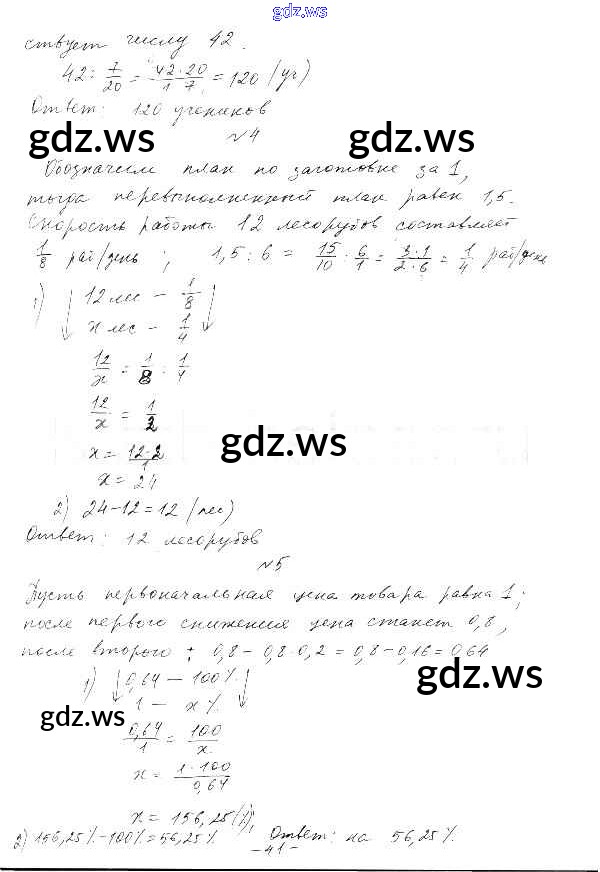 gdz.ws
ствует числу 42.
42 : 7/20 = 42·20/1·7 = 120 (уч)
Ответ: 120 учеников
gdz.ws №4 gdz.ws
Обозначим план по заготовке за 1,
тогда перевыполненный план равен 1,5.
Скорость работы 12 лесорубов составляет
1/8 раб/день ; 1,5 : 6 = 15/10 : 6/1 = 3·1/2·6 = 1/4 раб/день
1) ↓ 12 лес – 1/8 ↓
х лес – 1/4
12/х = 1/8 : 1/4
12/х = 1/2
gdz.ws
х = 12·2/1
х = 24
2) 24–12=12 (лес)
Ответ: 12 лесорубов
№5
Пусть первоначальная цена товара равна 1;
после первого снижения цена станет 0,8,
после второго : 0,8 – 0,8·0,2 = 0,8–0,16=0,64
gdz.ws
1) ↓ 0,64 – 100% ↓
1 – х%
gdz.ws
0,64/1 = 100/х
х = 1·100/0,64
х = 156,25(%);
2) 156,25%–100%=56,25% Ответ: на 56,25%.
–41–